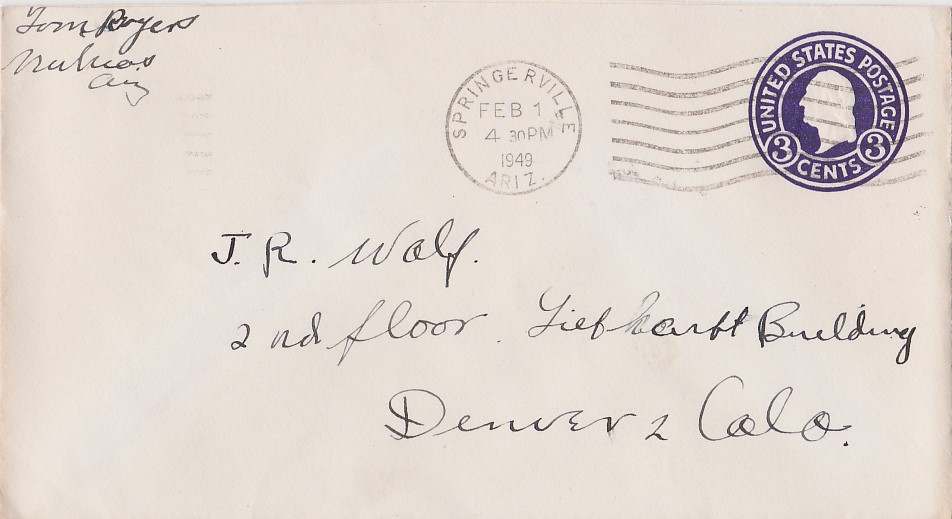 Tom Rogers
Nutrioso
Ariz
SPRINGERVILLE
FEB 1
4 30 PM
1949
ARIZ.
UNITED STATES POSTAGE
3 CENTS 3
J. R. Wolf.
2nd floor. Building
Denver 2 Colo.